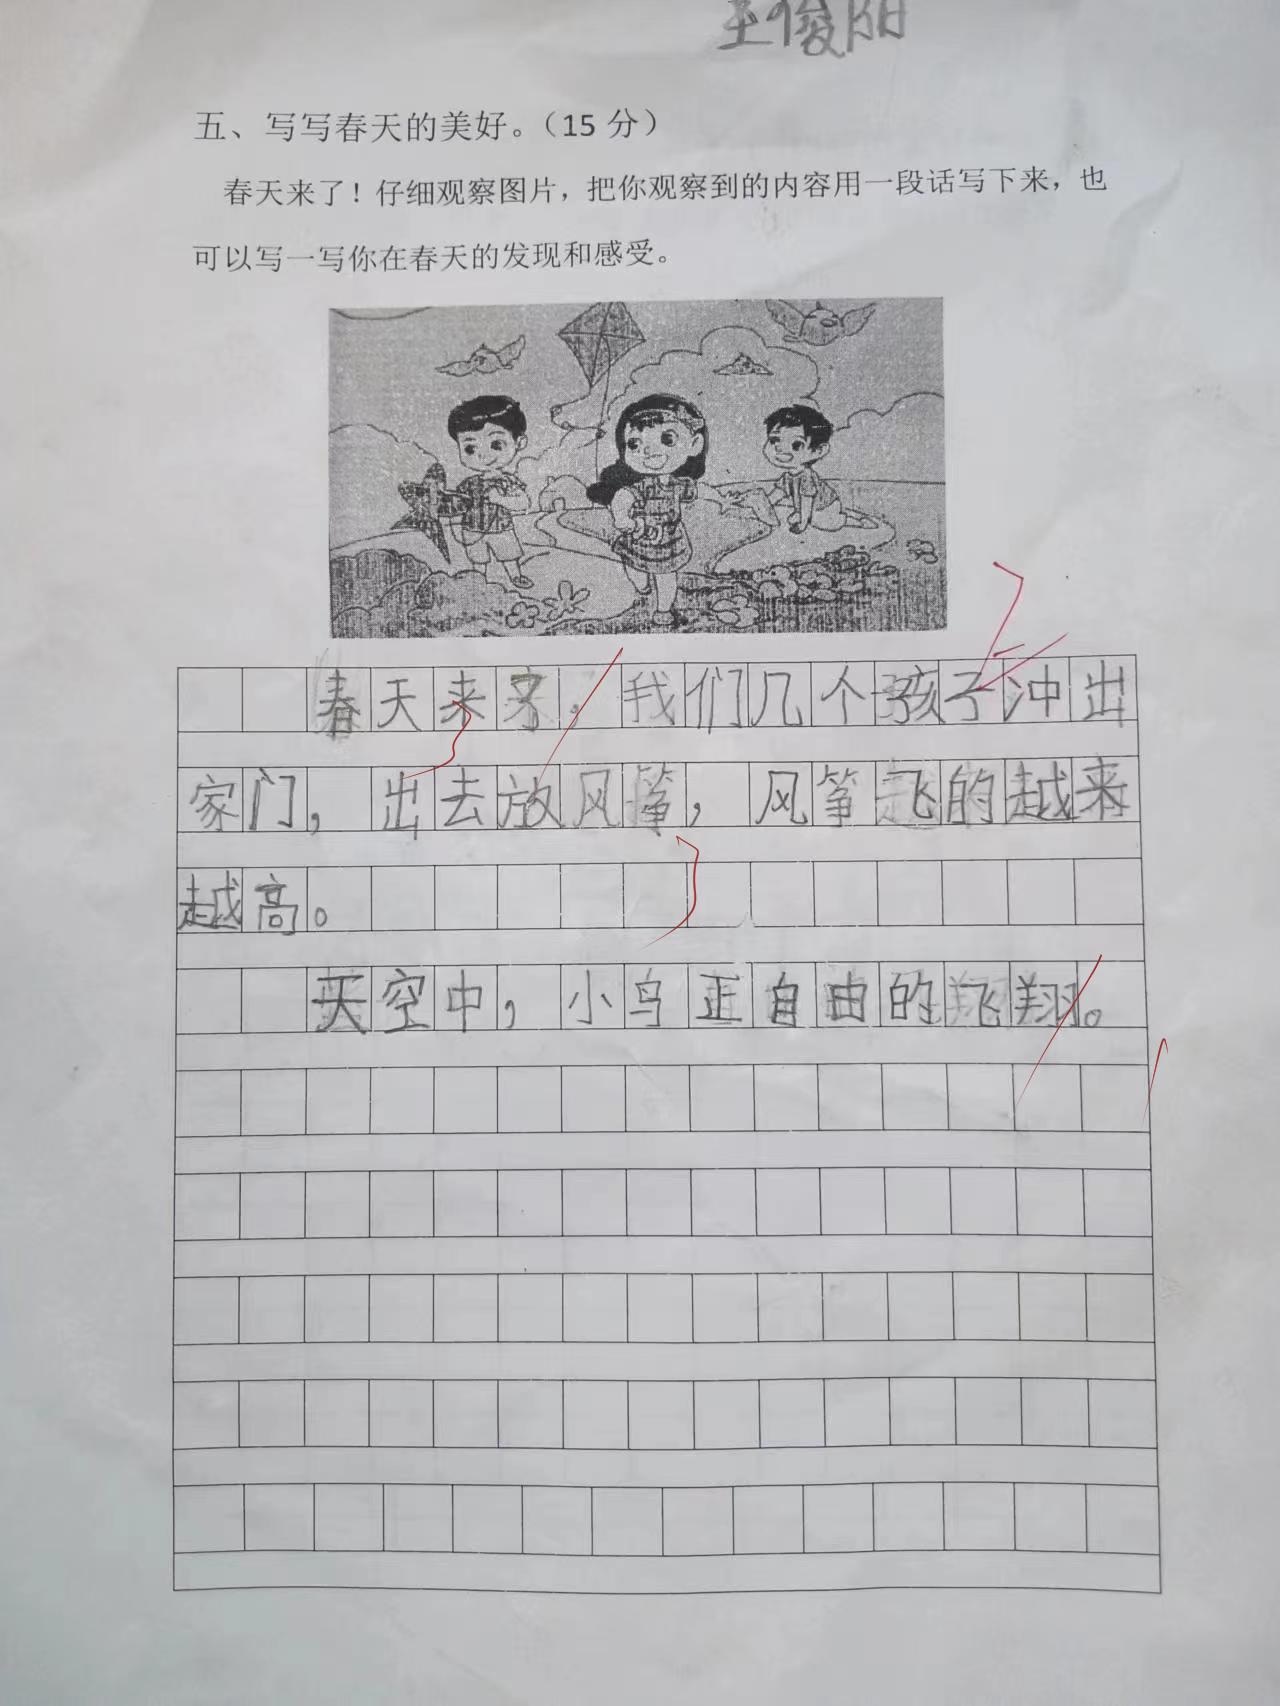 王俊阳
五、写写春天的美好。（15 分）
春天来了！仔细观察图片，把你观察到的内容用一段话写下来，也
可以写一写你在春天的发现和感受。
春天来了，我们几个孩子冲出
家门，出去放风筝，风筝飞的越来
越高。
天空中，小鸟正自由的飞翔。